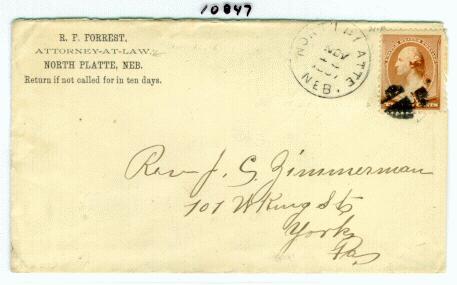 10847
R. F. FORREST,
ATTORNEY-AT-LAW,
NORTH PLATTE, NEB.
Return if not called for in ten days.
NORTH PLATTE
NOV
NEB.
CENTS
Rev J. C. Zimmerman
101 W King St
York
Pa